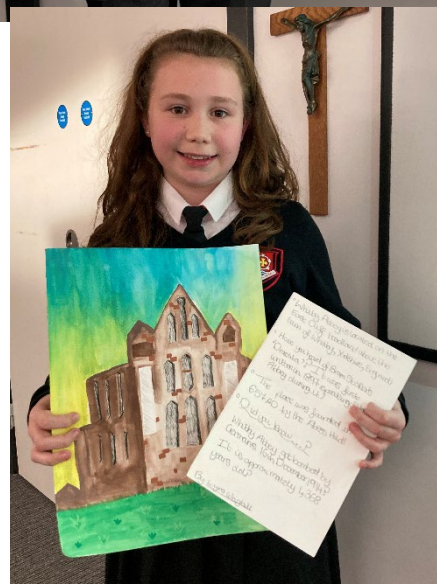 "Whitby Abbey is located on the
East Cliff headland above the
town of Whitby, Yorkshire, England.
• Have you heard of Bram Stoker's
"Dracula"? It was
written in 1897
Abbey during it!
• The place was founded in
657 AD by the Abbess Hild!
• Did you know...?
Whitby Abbey got bombed by
Germans 16th December 1914?
It is approximately 1,368
years old!
By